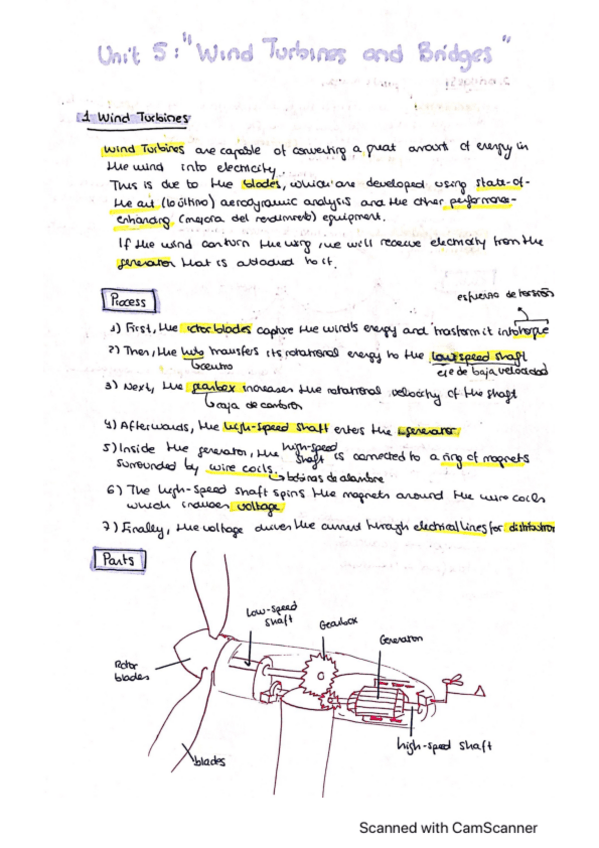 Unit 5: "Wind Turbines and Bridges"
1 Wind Turbines
Wind Turbines are capable of converting a great amount of energy in
the wind into electricity.
This is due to the blades, which are developed using state-of-
the art (lo último) aerodynamic analysis and the other performance-
enhancing (mejora del rendimiento) equipment.
If the wind can turn the wing, we will receive electricity from the
generator that is attached to it.
Process
esfuerzo de torsión
1) First, the rotor blades capture the wind's energy and trasform it into torque
2) Then, the hub transfers its rotational energy to the low speed shaft
centro
eje de baja velocidad
3) Next, the gearbox increases the rotational velocity of the shaft
caja de cambios
4) Afterwards, the high-speed shaft enters the generator
5) Inside the generator, the high-speed shaft is connected to a ring of magnets
surrounded by wire coils.
bobinas de alambre
6) The high-speed shaft spins the magnets around the wire coils
which induces voltage
7) Finally, the voltage drives the current through electrical lines for distribution
Parts
Low-speed
shaft
Gearbox
Generator
Rotor
blades
high-speed shaft
blades
Scanned with CamScanner